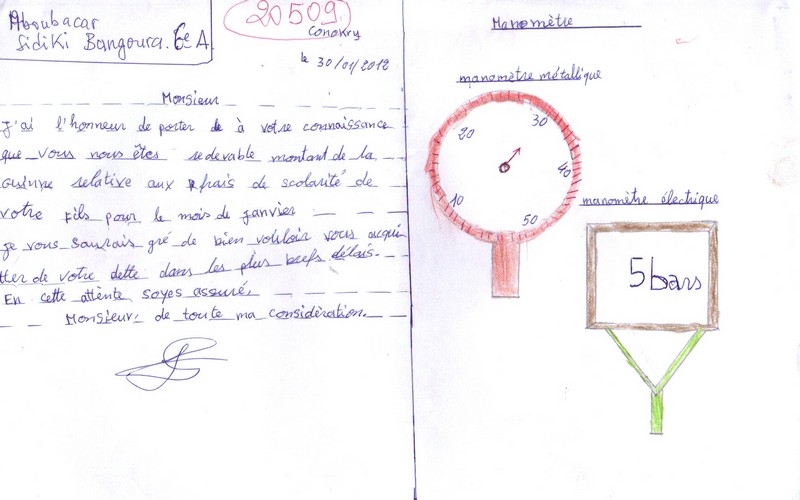 Aboubacar
Sidiki Bangoura. 6e A
20509
Conakry
le 30/01/2012
Monsieur
J'ai l'honneur de porter de à votre connaissance
que vous nous êtes redevable montant de la
relative aux frais de scolarité de
votre fils pour le mois de janvier
Je vous saurais gré de bien vouloir vous acqui
tter de votre dette dans les plus brefs délais.
En cette attente soyes assuré,
Monsieur, de toute ma considération.
Manomètre
manomètre métallique
20
30
40
10
50
manomètre électrique
5 bars